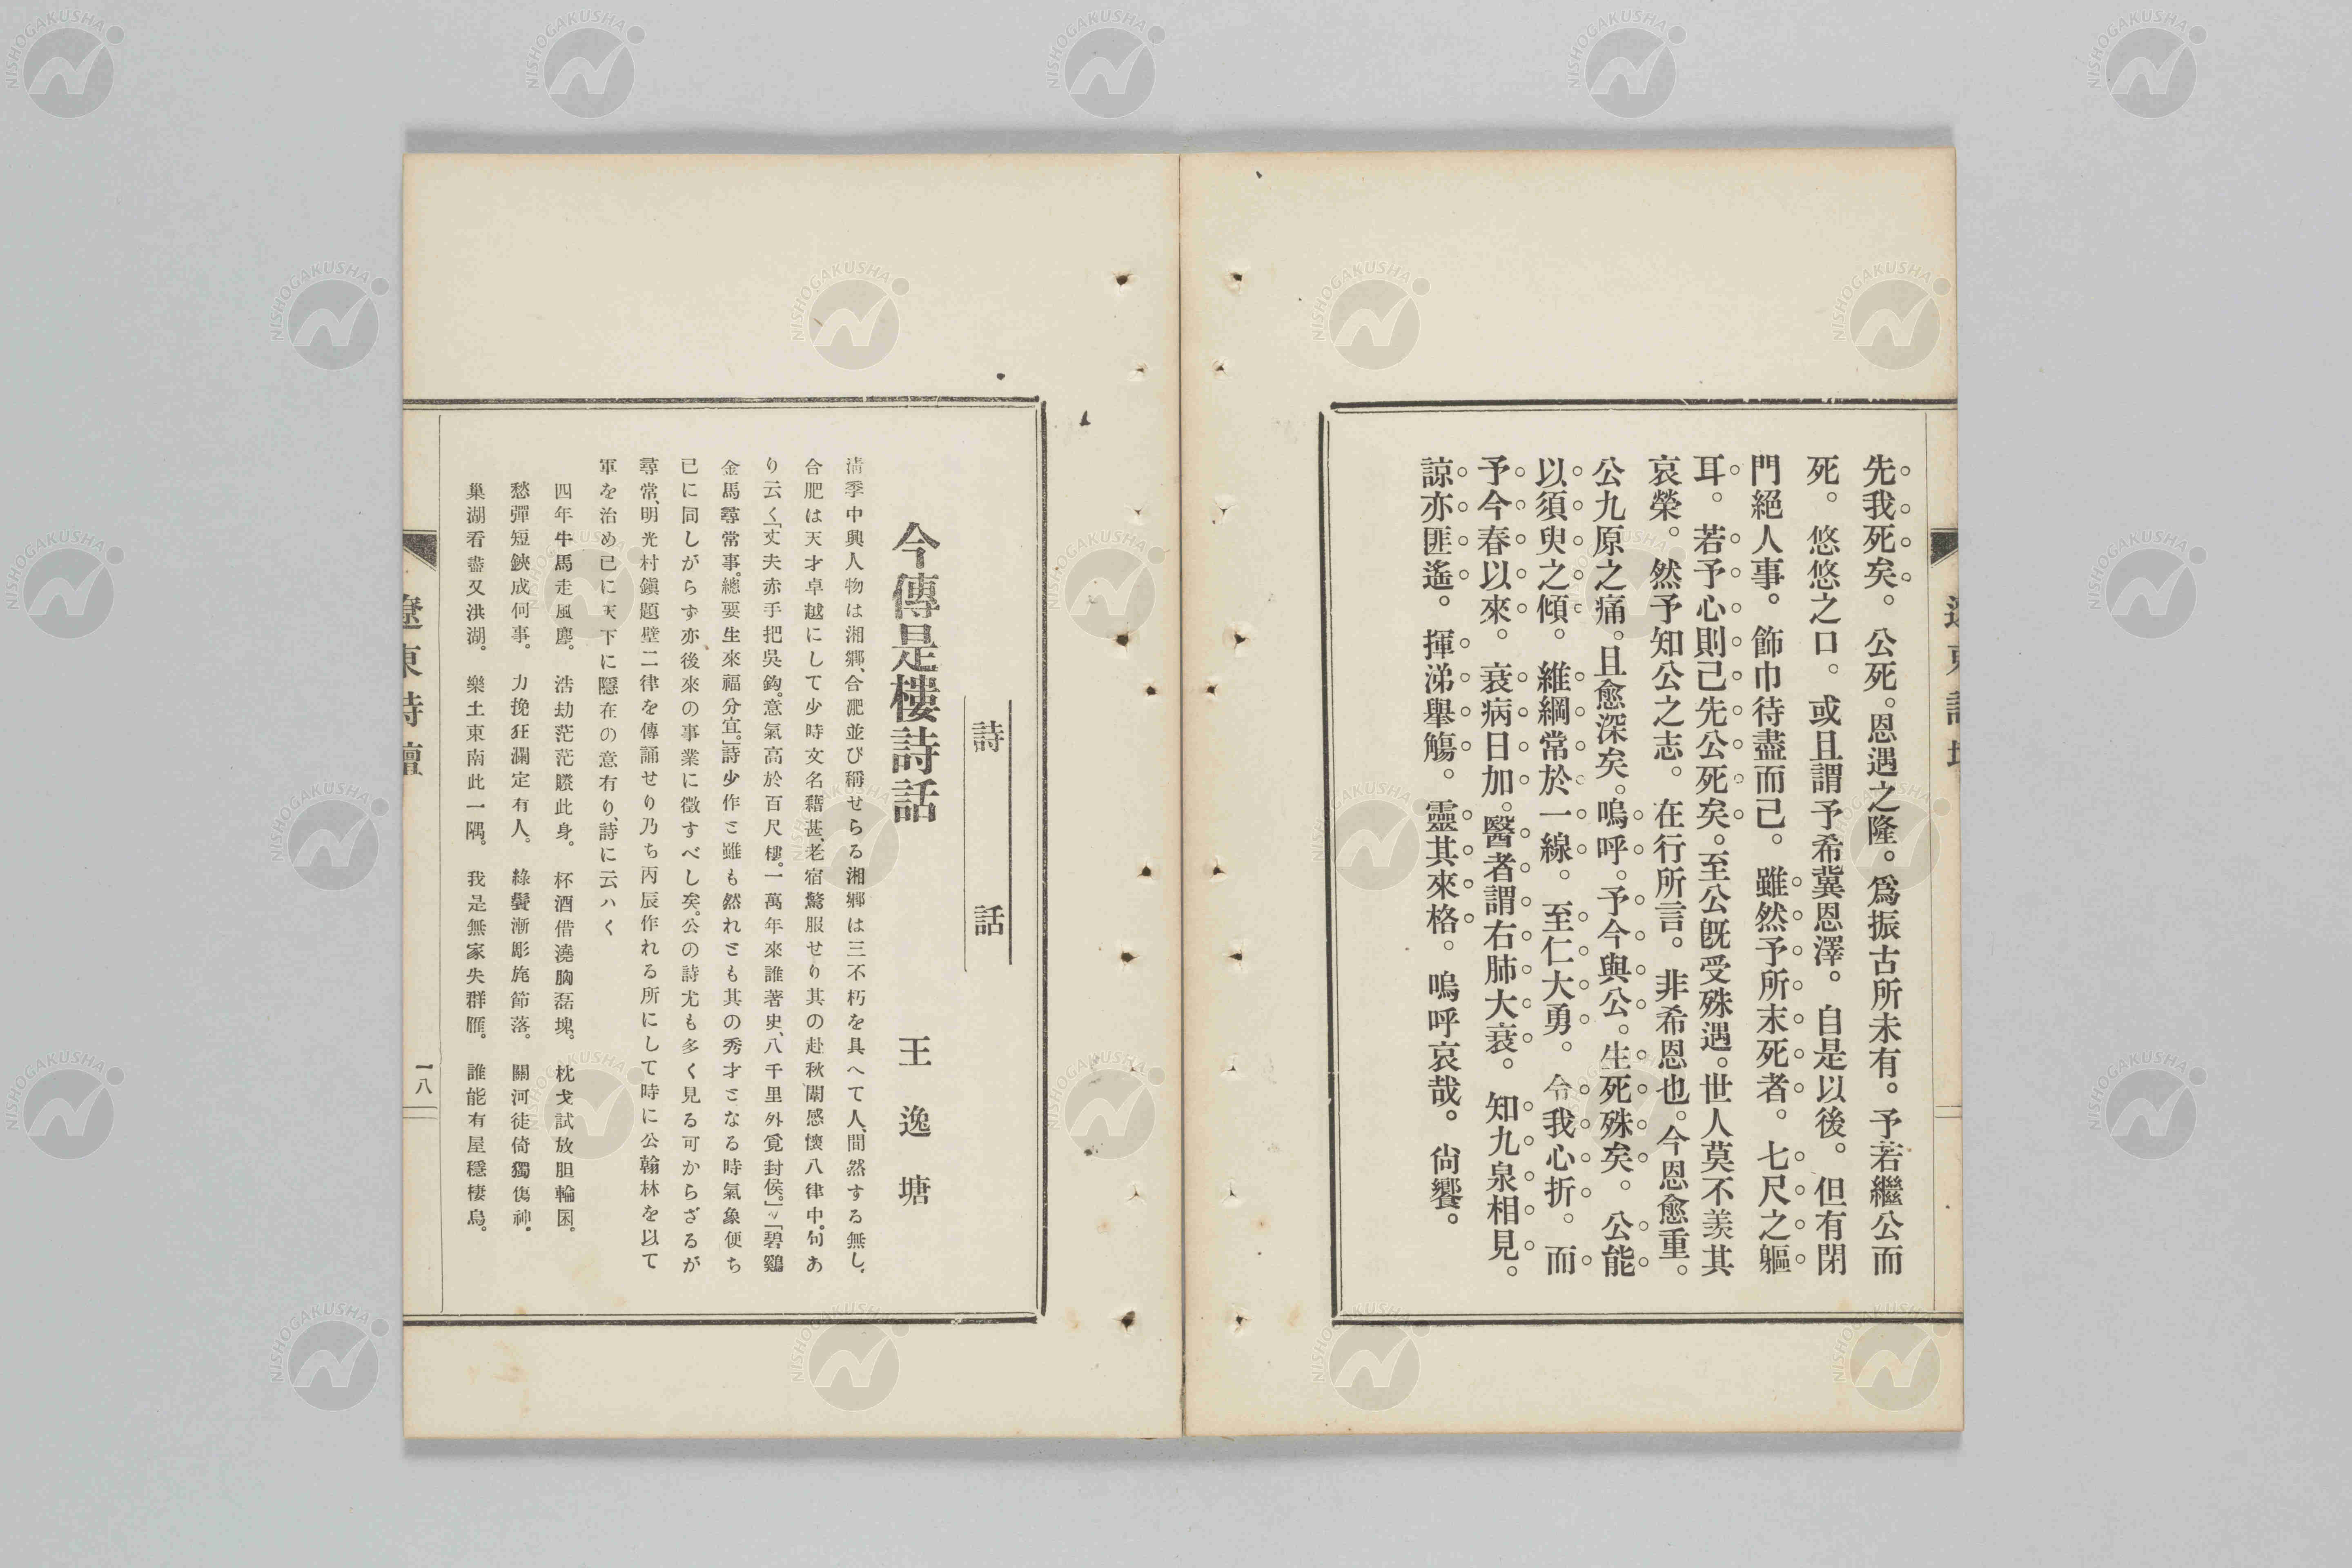 先我死矣。公死。恩遇之隆。爲振古所未有。予若繼公而
死。悠悠之口。或且謂予希冀恩澤。自是以後。但有閉
門絕人事。飾巾待盡而已。雖然予所末死者。七尺之軀
耳。若予心則已先公死矣。至公既受殊遇。世人莫不羨其
哀榮。然予知公之志。在行所言。非希恩也。今恩愈重。
公九原之痛。且愈深矣。嗚呼。予今與公。生死殊矣。公能
以須臾之傾。維綱常於一線。至仁大勇。令我心折。而
予今春以來。衰病日加。醫者謂右肺大衰。知九泉相見。
諒亦匪遙。揮涕舉觴。靈其來格。嗚呼哀哉。尙饗。
詩話
今傳是樓詩話 王逸塘
淸季中興人物は湘鄕、合肥並び稱せらる湘鄕は三不朽を具へて人、間然する無し、
合肥は天才卓越にして少時文名藉甚、老宿驚服せり其の赴秋闈感懷八律中。句あ
り云く「丈夫亦手把吳鈎。意氣高於百尺樓。一萬年來誰著史、八千里外覓封侯。」「碧鷄
金馬尋常事。總要生來福分宜。」詩少作と雖も然れども其の秀才となる時氣象便ち
已に同しがらず亦後來の事業に徵すべし矣。公の詩尤も多く見る可からざるが
尋常、明光村鎭題壁二律を傳誦せり乃ち丙辰作れる所にして時に公翰林を以て
軍を治め已に天下に隱在の意有り、詩に云ハく
四年牛馬走風塵。浩劫茫茫賸此身。杯酒借澆胸磊塊。枕戈試放胆輪囷。
愁彈短鋏成何事。力挽狂瀾定有人。綠鬢漸彫旄節落。關河徒倚獨傷神。
巢湖看盡又洪湖。樂土東南此一隅。我是無家失群雁。誰能有屋穩棲烏。
遼東詩壇
一八
NISHOGAKUSHA